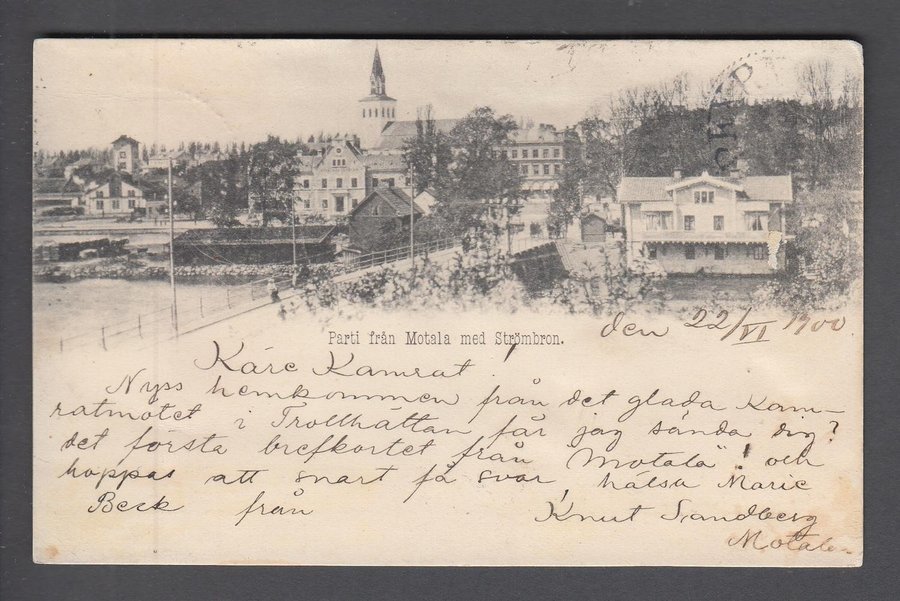 Parti från Motala med Strömbron.
den 22/VI 1900
Käre Kamrat!
Nyss hemkommen från det glada Kam-
ratmötet i Trollhättan får jag sända dig?
det första brefkortet från "Motala"! och
hoppas att snart få svar, hälsa Marie
Beck från Knut Sandberg
Motala